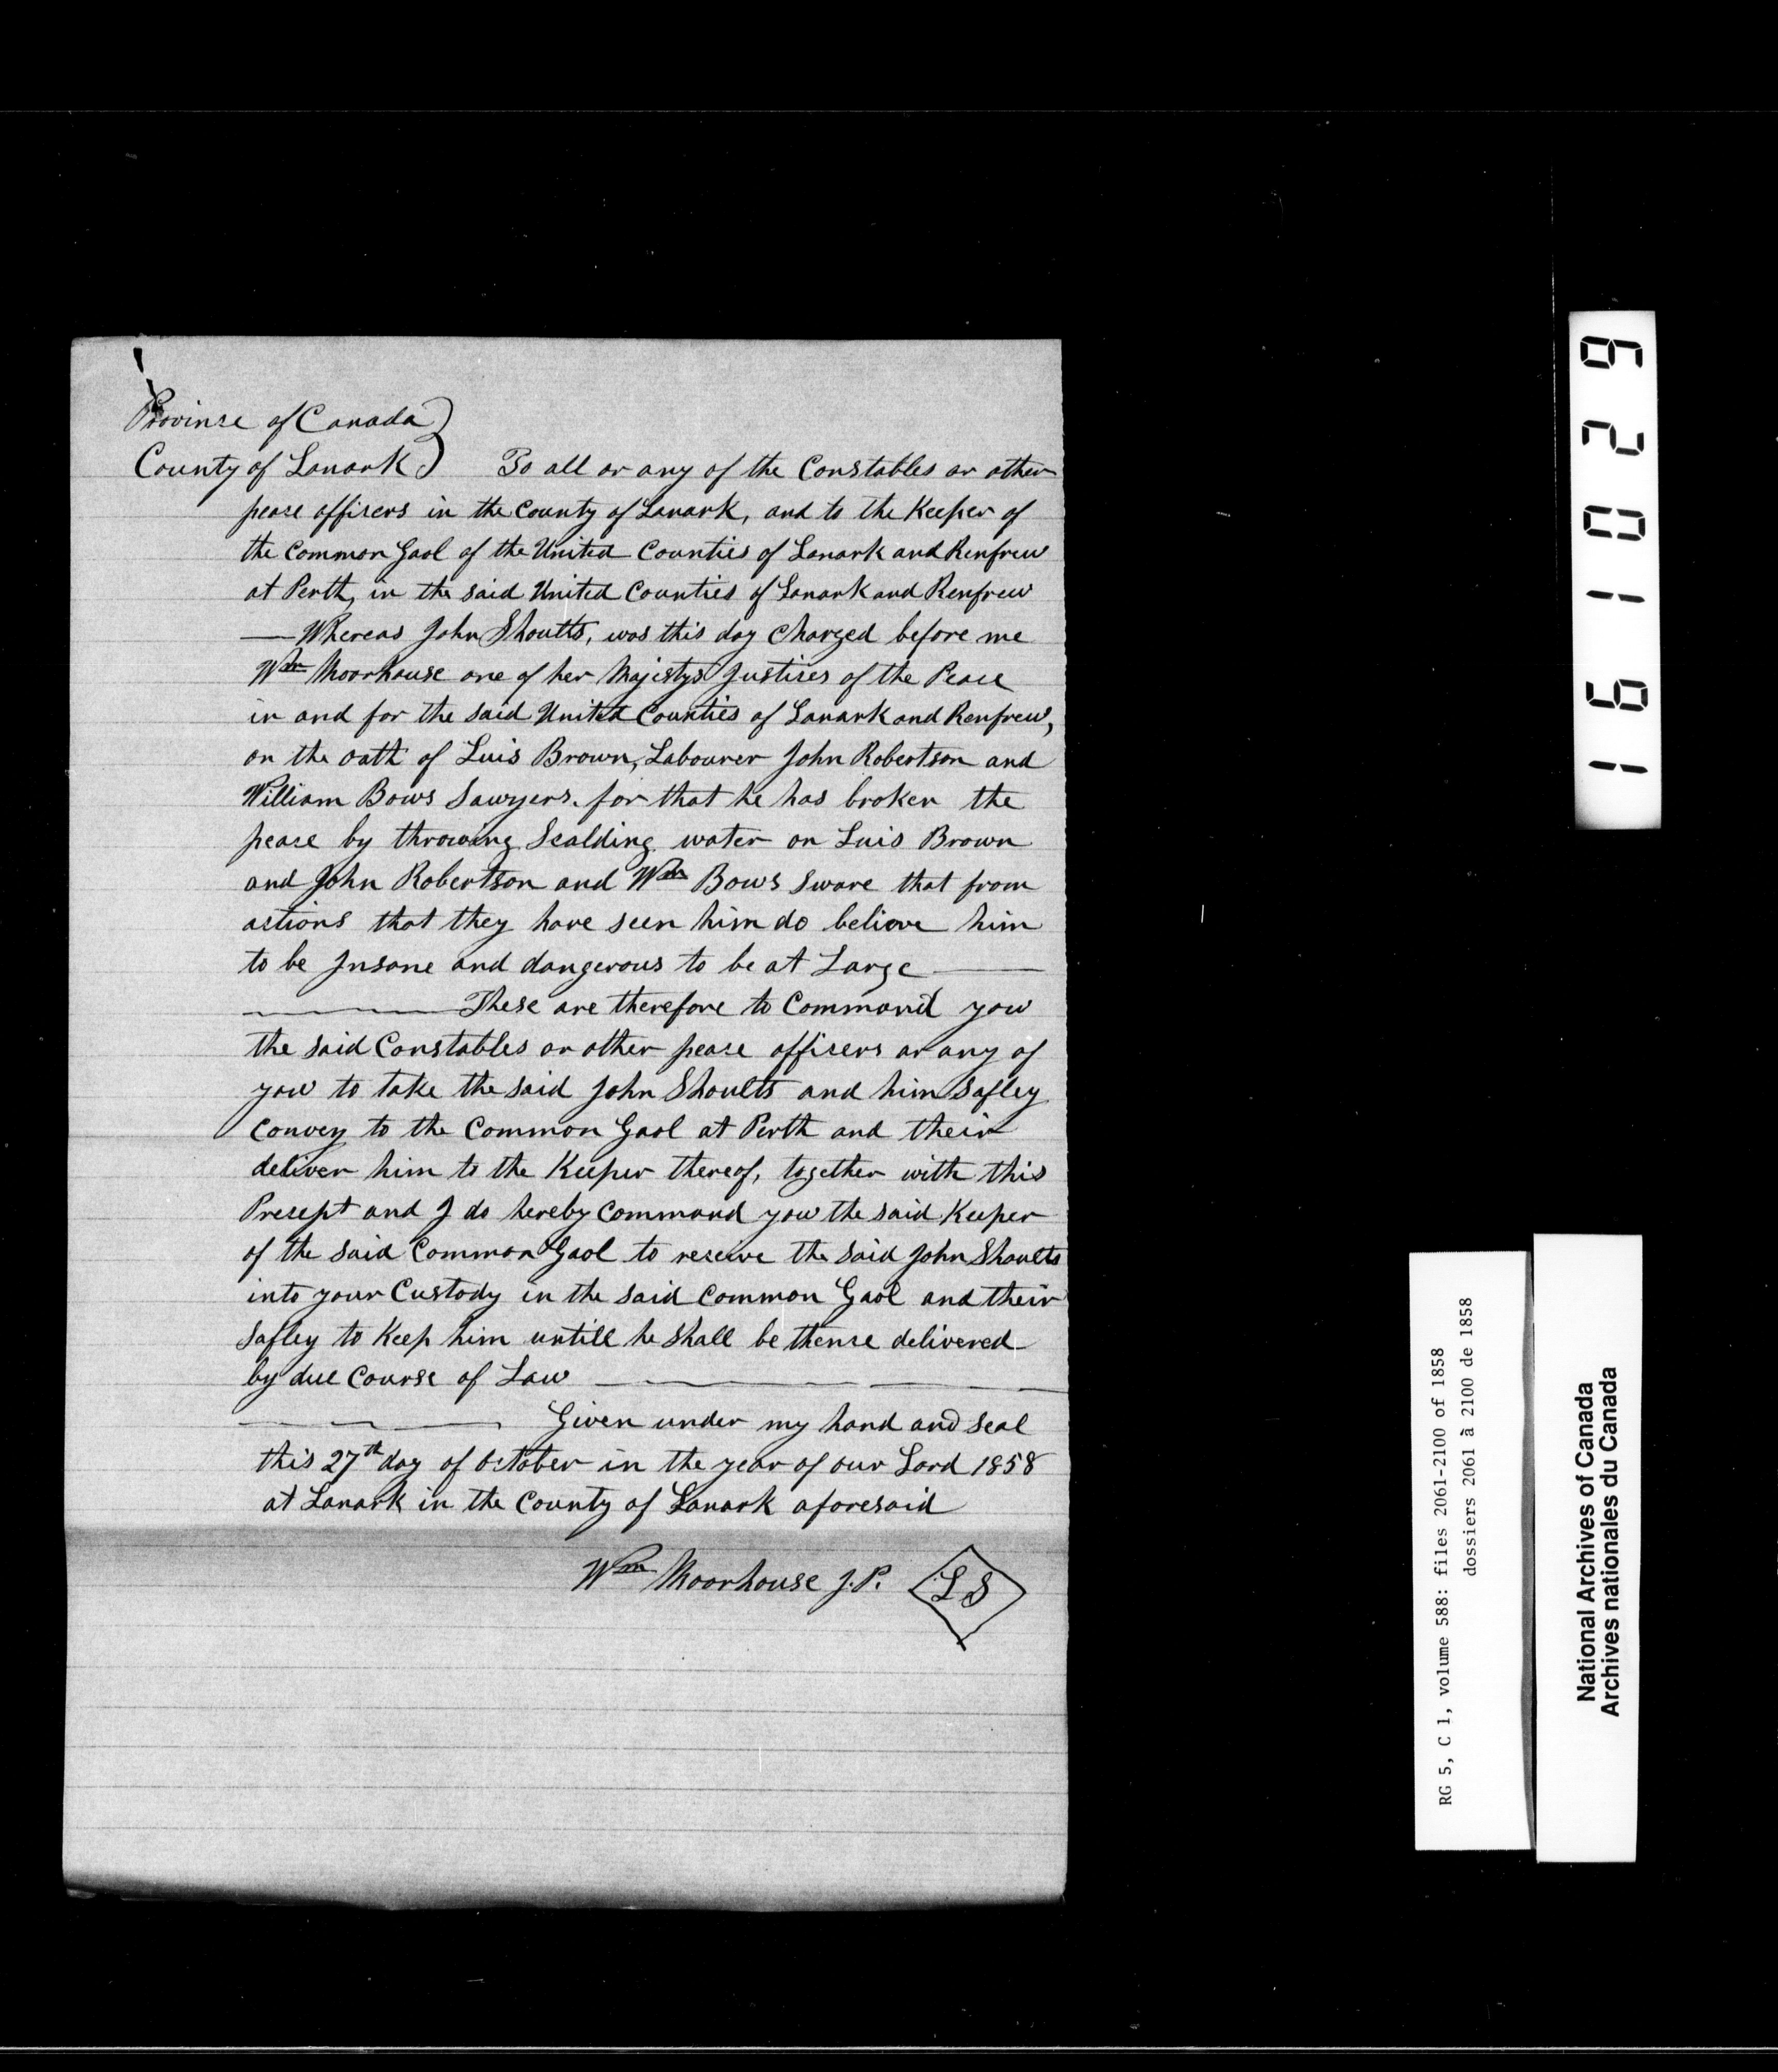 Province of Canada)
County of Lanark) To all or any of the Constables or other
peace officers in the County of Lanark, and to the Keeper of
the Common Gaol of the United Counties of Lanark and Renfrew
at Perth, in the said United Counties of Lanark and Renfrew
— Whereas John Shoults, was this day Charged before me
Wm Moorhouse one of her Majestys Justices of the Peace
in and for the said United Counties of Lanark and Renfrew,
on the oath of Luis Brown, Labourer John Robertson and
William Bows Sawyers. for that he has broken the
peace by throwing Scalding water on Luis Brown
and John Robertson and Wm Bows Swore that from
actions that they have seen him do believe him
to be Insane and dangerous to be at Large —
— These are therefore to Command you
the said Constables or other peace officers or any of
you to take the said John Shoults and him Safley
Convey to the Common Gaol at Perth and their
deliver him to the Keeper thereof, together with this
Precept and I do hereby Command you the said Keeper
of the said Common Gaol to receive the said John Shoults
into your Custody in the said Common Gaol and their
Safley to Keep him untill he shall be thence delivered
by due Course of Law —
— Given under my hand and seal
this 27th day of October in the year of our Lord 1858
at Lanark in the County of Lanark aforesaid
Wm Moorhouse J.P. LS
161029
RG 5, C 1, volume 588: files 2061-2100 of 1858
dossiers 2061 à 2100 de 1858
National Archives of Canada
Archives nationales du Canada